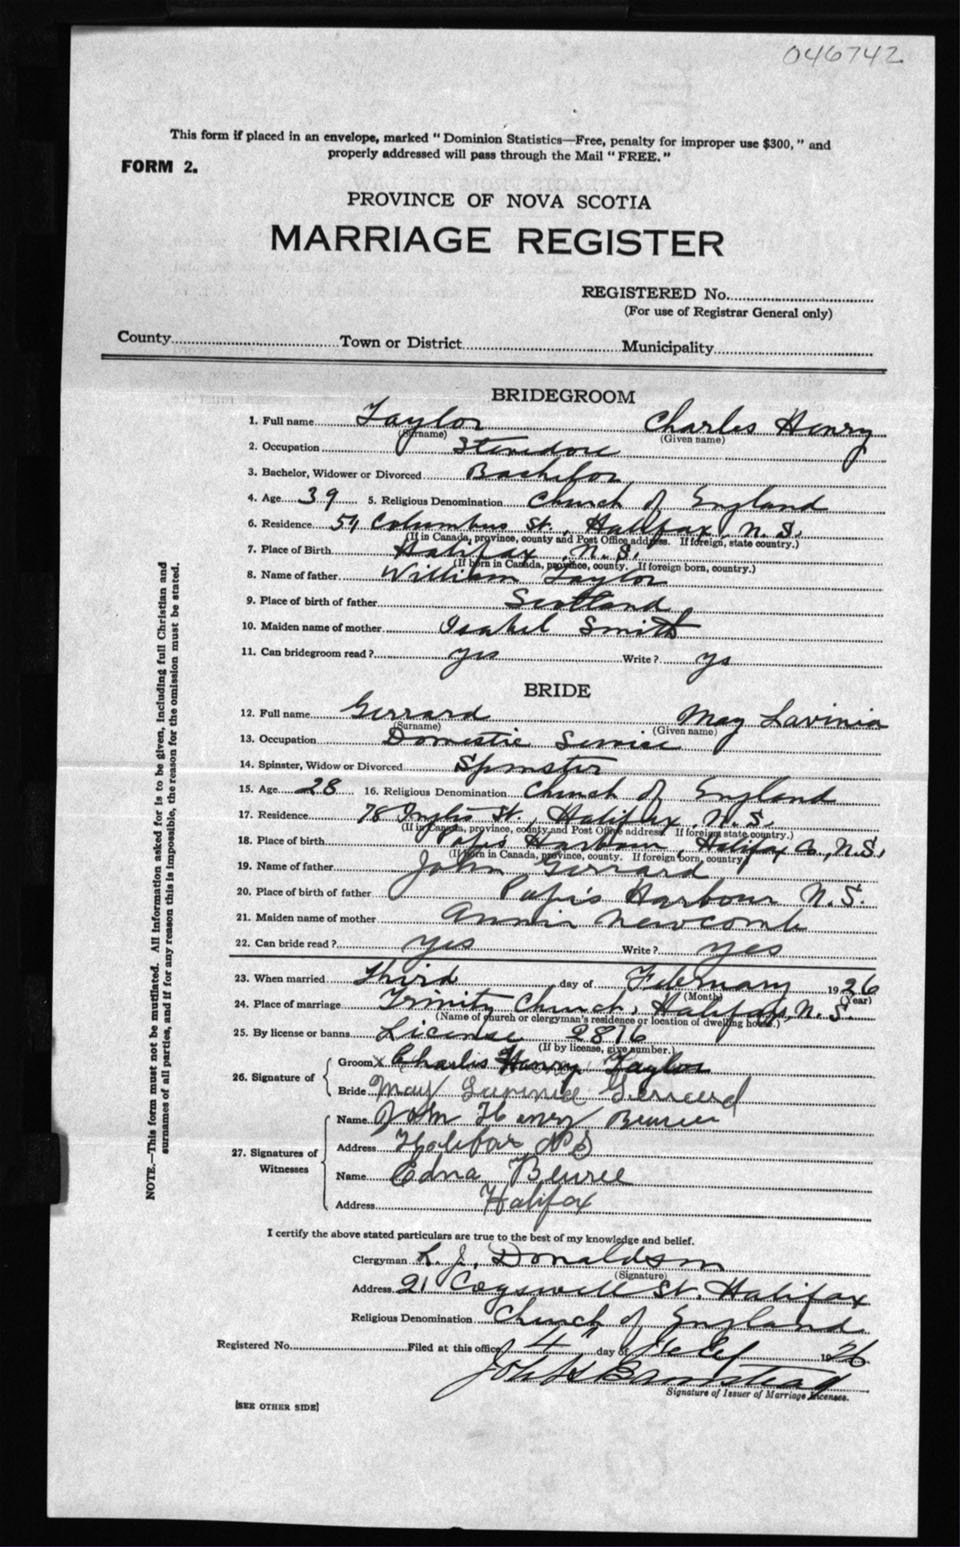 046742
This form if placed in an envelope, marked "Dominion Statistics—Free, penalty for improper use $300," and
properly addressed will pass through the Mail "FREE."
FORM 2.
PROVINCE OF NOVA SCOTIA
MARRIAGE REGISTER
REGISTERED No.
(For use of Registrar General only)
County Town or District Municipality
BRIDEGROOM
1. Full name Taylor Charles Henry
(Surname) (Given name)
2. Occupation Stevedore
3. Bachelor, Widower or Divorced Bachelor
4. Age 39 5. Religious Denomination Church of England
6. Residence 54 Columbus St., Halifax, N.S.
(If in Canada, province, county and Post Office address. If foreign, state country.)
7. Place of Birth Halifax, N.S.
(If born in Canada, province, county. If foreign born, country.)
8. Name of father William Taylor
9. Place of birth of father Scotland
10. Maiden name of mother Isabel Smith
11. Can bridegroom read? yes Write? ys
BRIDE
12. Full name Gerrard May Lavinia
(Surname) (Given name)
13. Occupation Domestic Service
14. Spinster, Widow or Divorced Spinster
15. Age 28 16. Religious Denomination Church of England
17. Residence 78 Inglis St., Halifax, N.S.
(If in Canada, province, county and Post Office address If foreign state country.)
18. Place of birth Pope's Harbour, Halifax Co., N.S.
(If born in Canada, province, county. If foreign born, country)
19. Name of father John Gerrard
20. Place of birth of father Pope's Harbour N.S.
21. Maiden name of mother Annie Newcomb
22. Can bride read? yes Write? yes
23. When married Third day of February 1926
(Month) (Year)
24. Place of marriage Trinity Church, Halifax, N.S.
(Name of church or clergyman's residence or location of dwelling house.)
25. By license or banns License 2816
(If by license, give number.)
26. Signature of Groom X Charles Henry Taylor
Bride May Lavinia Gerrard
27. Signatures of Witnesses Name John Henry
Address Halifax NS
Name Edna
Address Halifax
I certify the above stated particulars are true to the best of my knowledge and belief.
Clergyman L. J. Donaldson
(Signature)
Address 21 Cogswell St. Halifax
Religious Denomination Church of England
Registered No. Filed at this office 4" day of Feb 1926
Signature of Issuer of Marriage Licenses.
[SEE OTHER SIDE]
NOTE.—This form must not be mutilated. All information asked for is to be given, including full Christian and
surnames of all parties, and if for any reason this is impossible, the reason for the omission must be stated.